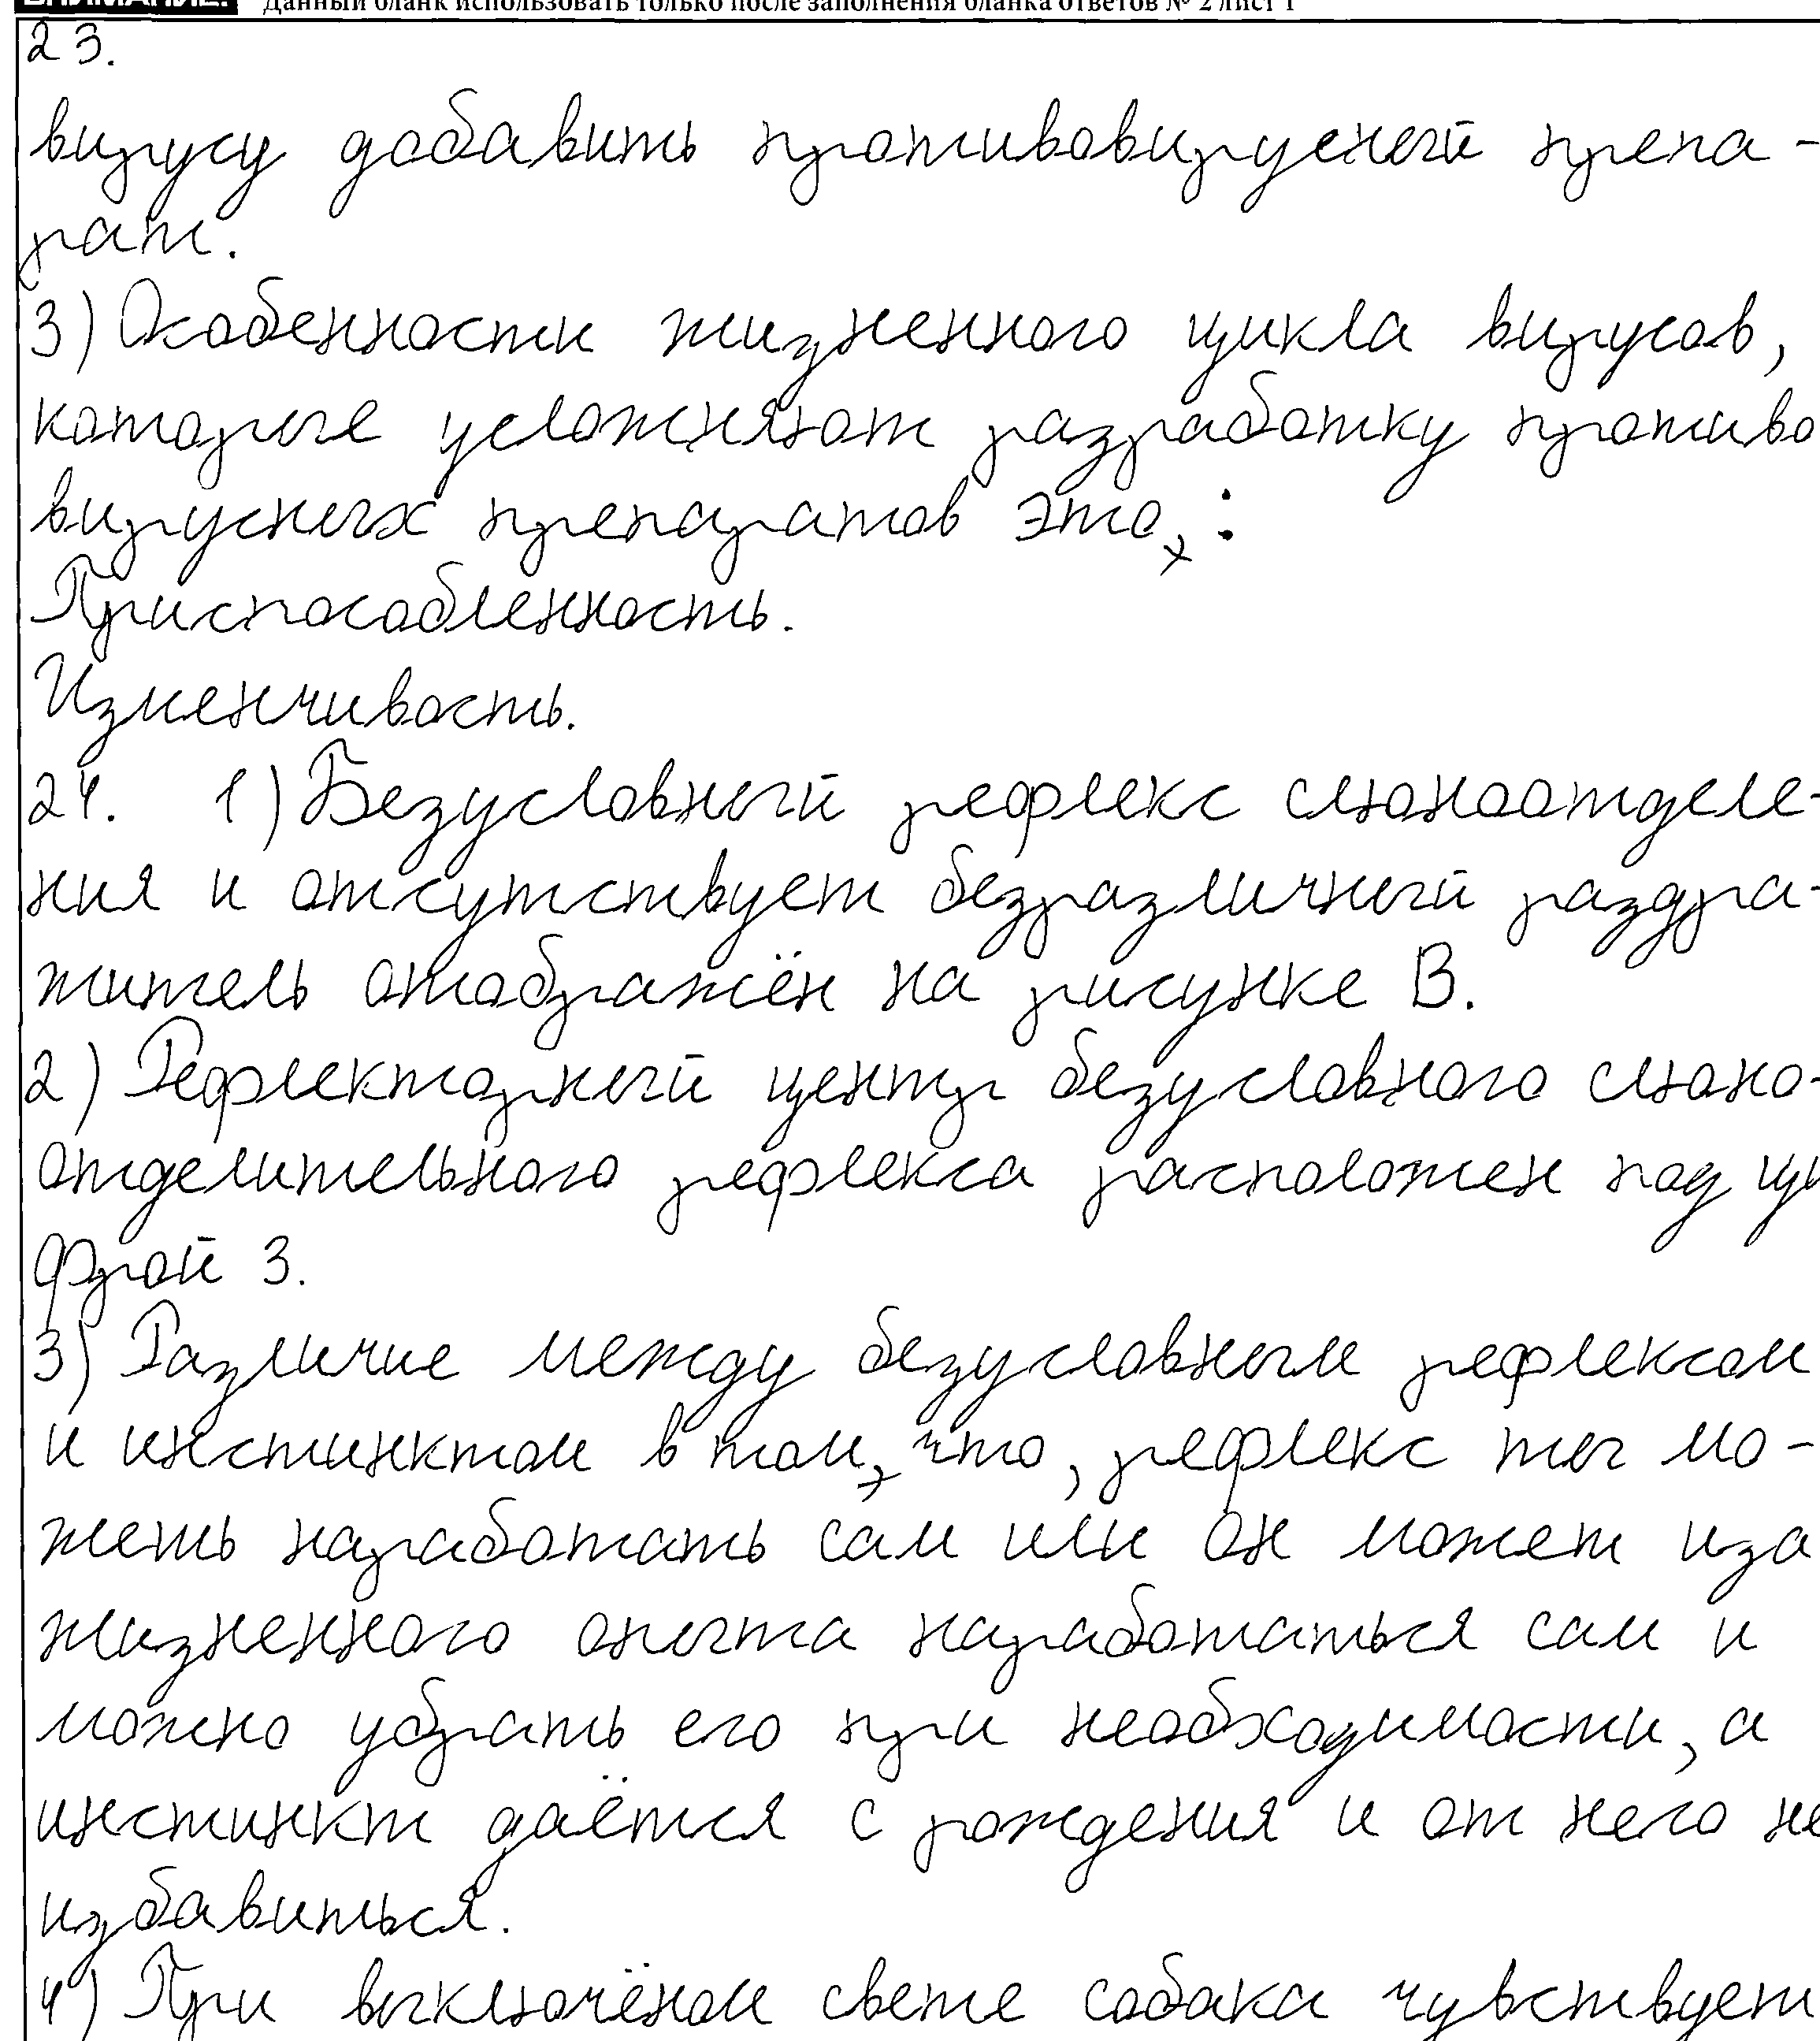 ВНИМАНИЕ! Данный бланк использовать только после заполнения бланка ответов № 2 лист 1
23.
вирусу добавить противовирусный препа-
рат.
3) Особенности жизненного цикла вирусов,
которые усложняют разработку противо
вирусных препаратов это, :
Приспособленность.
Изменчивость.
24. 1) Безусловный рефлекс слюноотделе-
ния и отсутствует безразличный раздра-
житель отображён на рисунке В.
2) Рефлекторный центр безусловного слюно-
отделительного рефлекса расположен под ци
фрой 3.
3) Различие между безусловным рефлексом
и инстинктом в том, что, рефлекс ты мо-
жешь наработать сам или он может иза
жизненного опыта наработаться сам и
можно убрать его при необходимости, а
инстинкт даётся с рождения и от него не
избавиться.
4) При выключёном свете собака чувствует